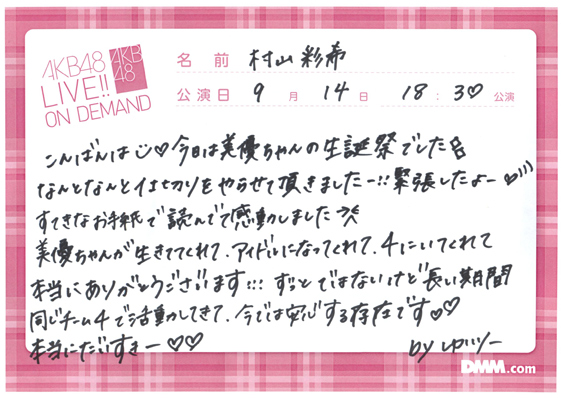 AKB48
LIVE!!
ON DEMAND
AKB
48
名前 村山彩希
公演日 9月14日 18:30♡ 公演
こんばんは♡今日は美優ちゃんの生誕祭でした
なんとなんと仕切りをやらせて頂きましたー!!緊張したよー♡)))
すてきなお手紙で読んでて感動しました
美優ちゃんが生きててくれて、アイドルになってくれて、4にいてくれて
本当にありがとうございます!!! ずっとではないけど長い期間
同じチーム4で活動してきて、今では安心する存在です♡♡
本当にだいすきー♡♡
by ゆいりー
DMM.com